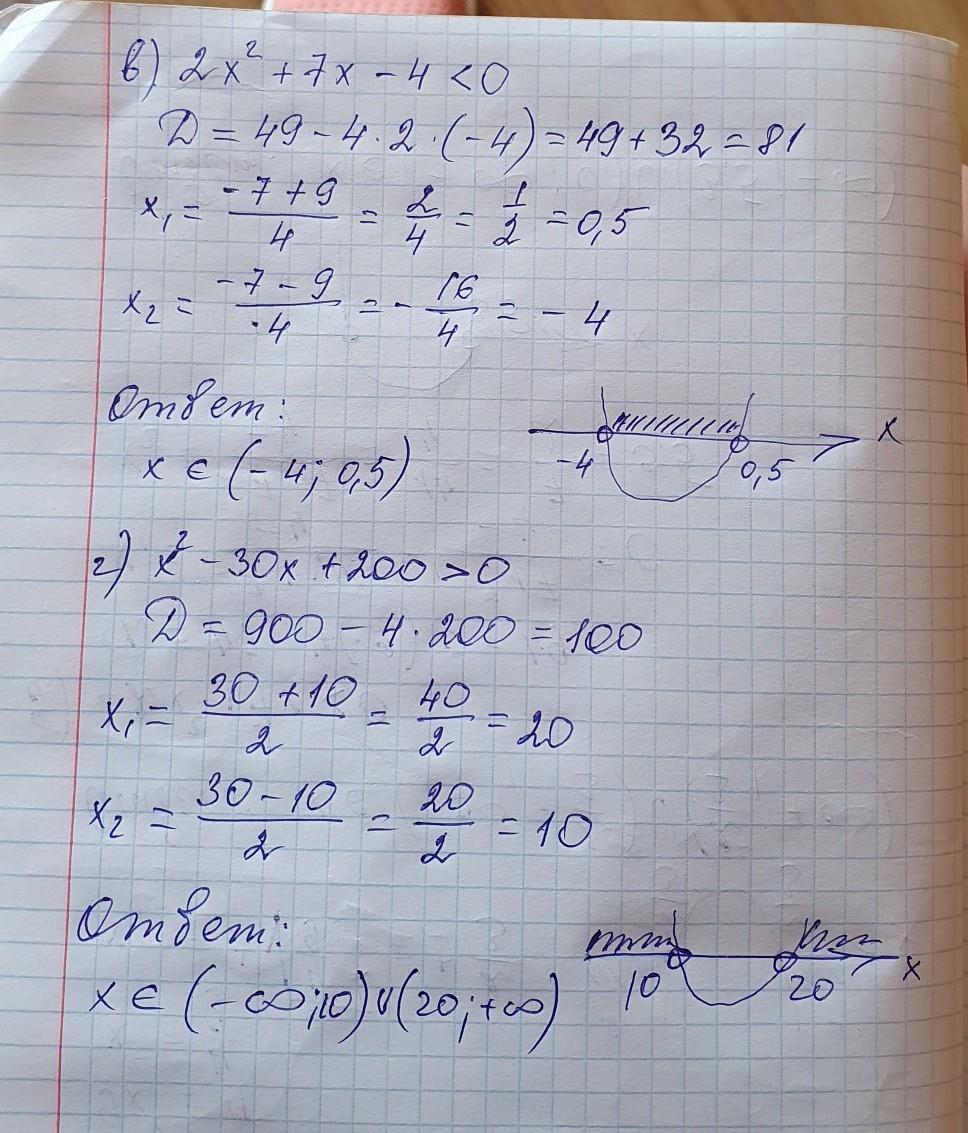 в) 2x² + 7x - 4 < 0
Д = 49 - 4·2·(-4) = 49 + 32 = 81
x₁ = (-7 + 9)/4 = 2/4 = 1/2 = 0,5
x₂ = (-7 - 9)/4 = -16/4 = -4
Ответ:
x ∈ (-4; 0,5)
-4 0,5 x
г) x² - 30x + 200 > 0
Д = 900 - 4·200 = 100
x₁ = (30 + 10)/2 = 40/2 = 20
x₂ = (30 - 10)/2 = 20/2 = 10
Ответ:
x ∈ (-∞; 10) ∪ (20; +∞)
10 20 x